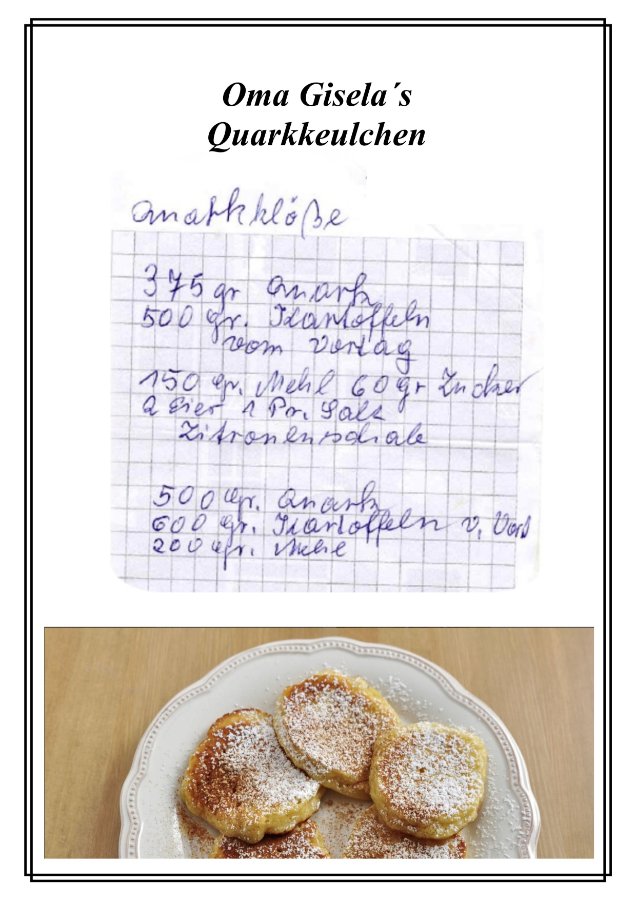 Oma Gisela´s
Quarkkeulchen
Quarkklöße
375 gr Quark
500 gr. Kartoffeln
vom Vortag
150 gr. Mehl 60 gr Zucker
2 Eier 1 Pr. Salz
Zitronenschale
500 gr. Quark
600 gr. Kartoffeln v. Vort
200 gr. Mehl